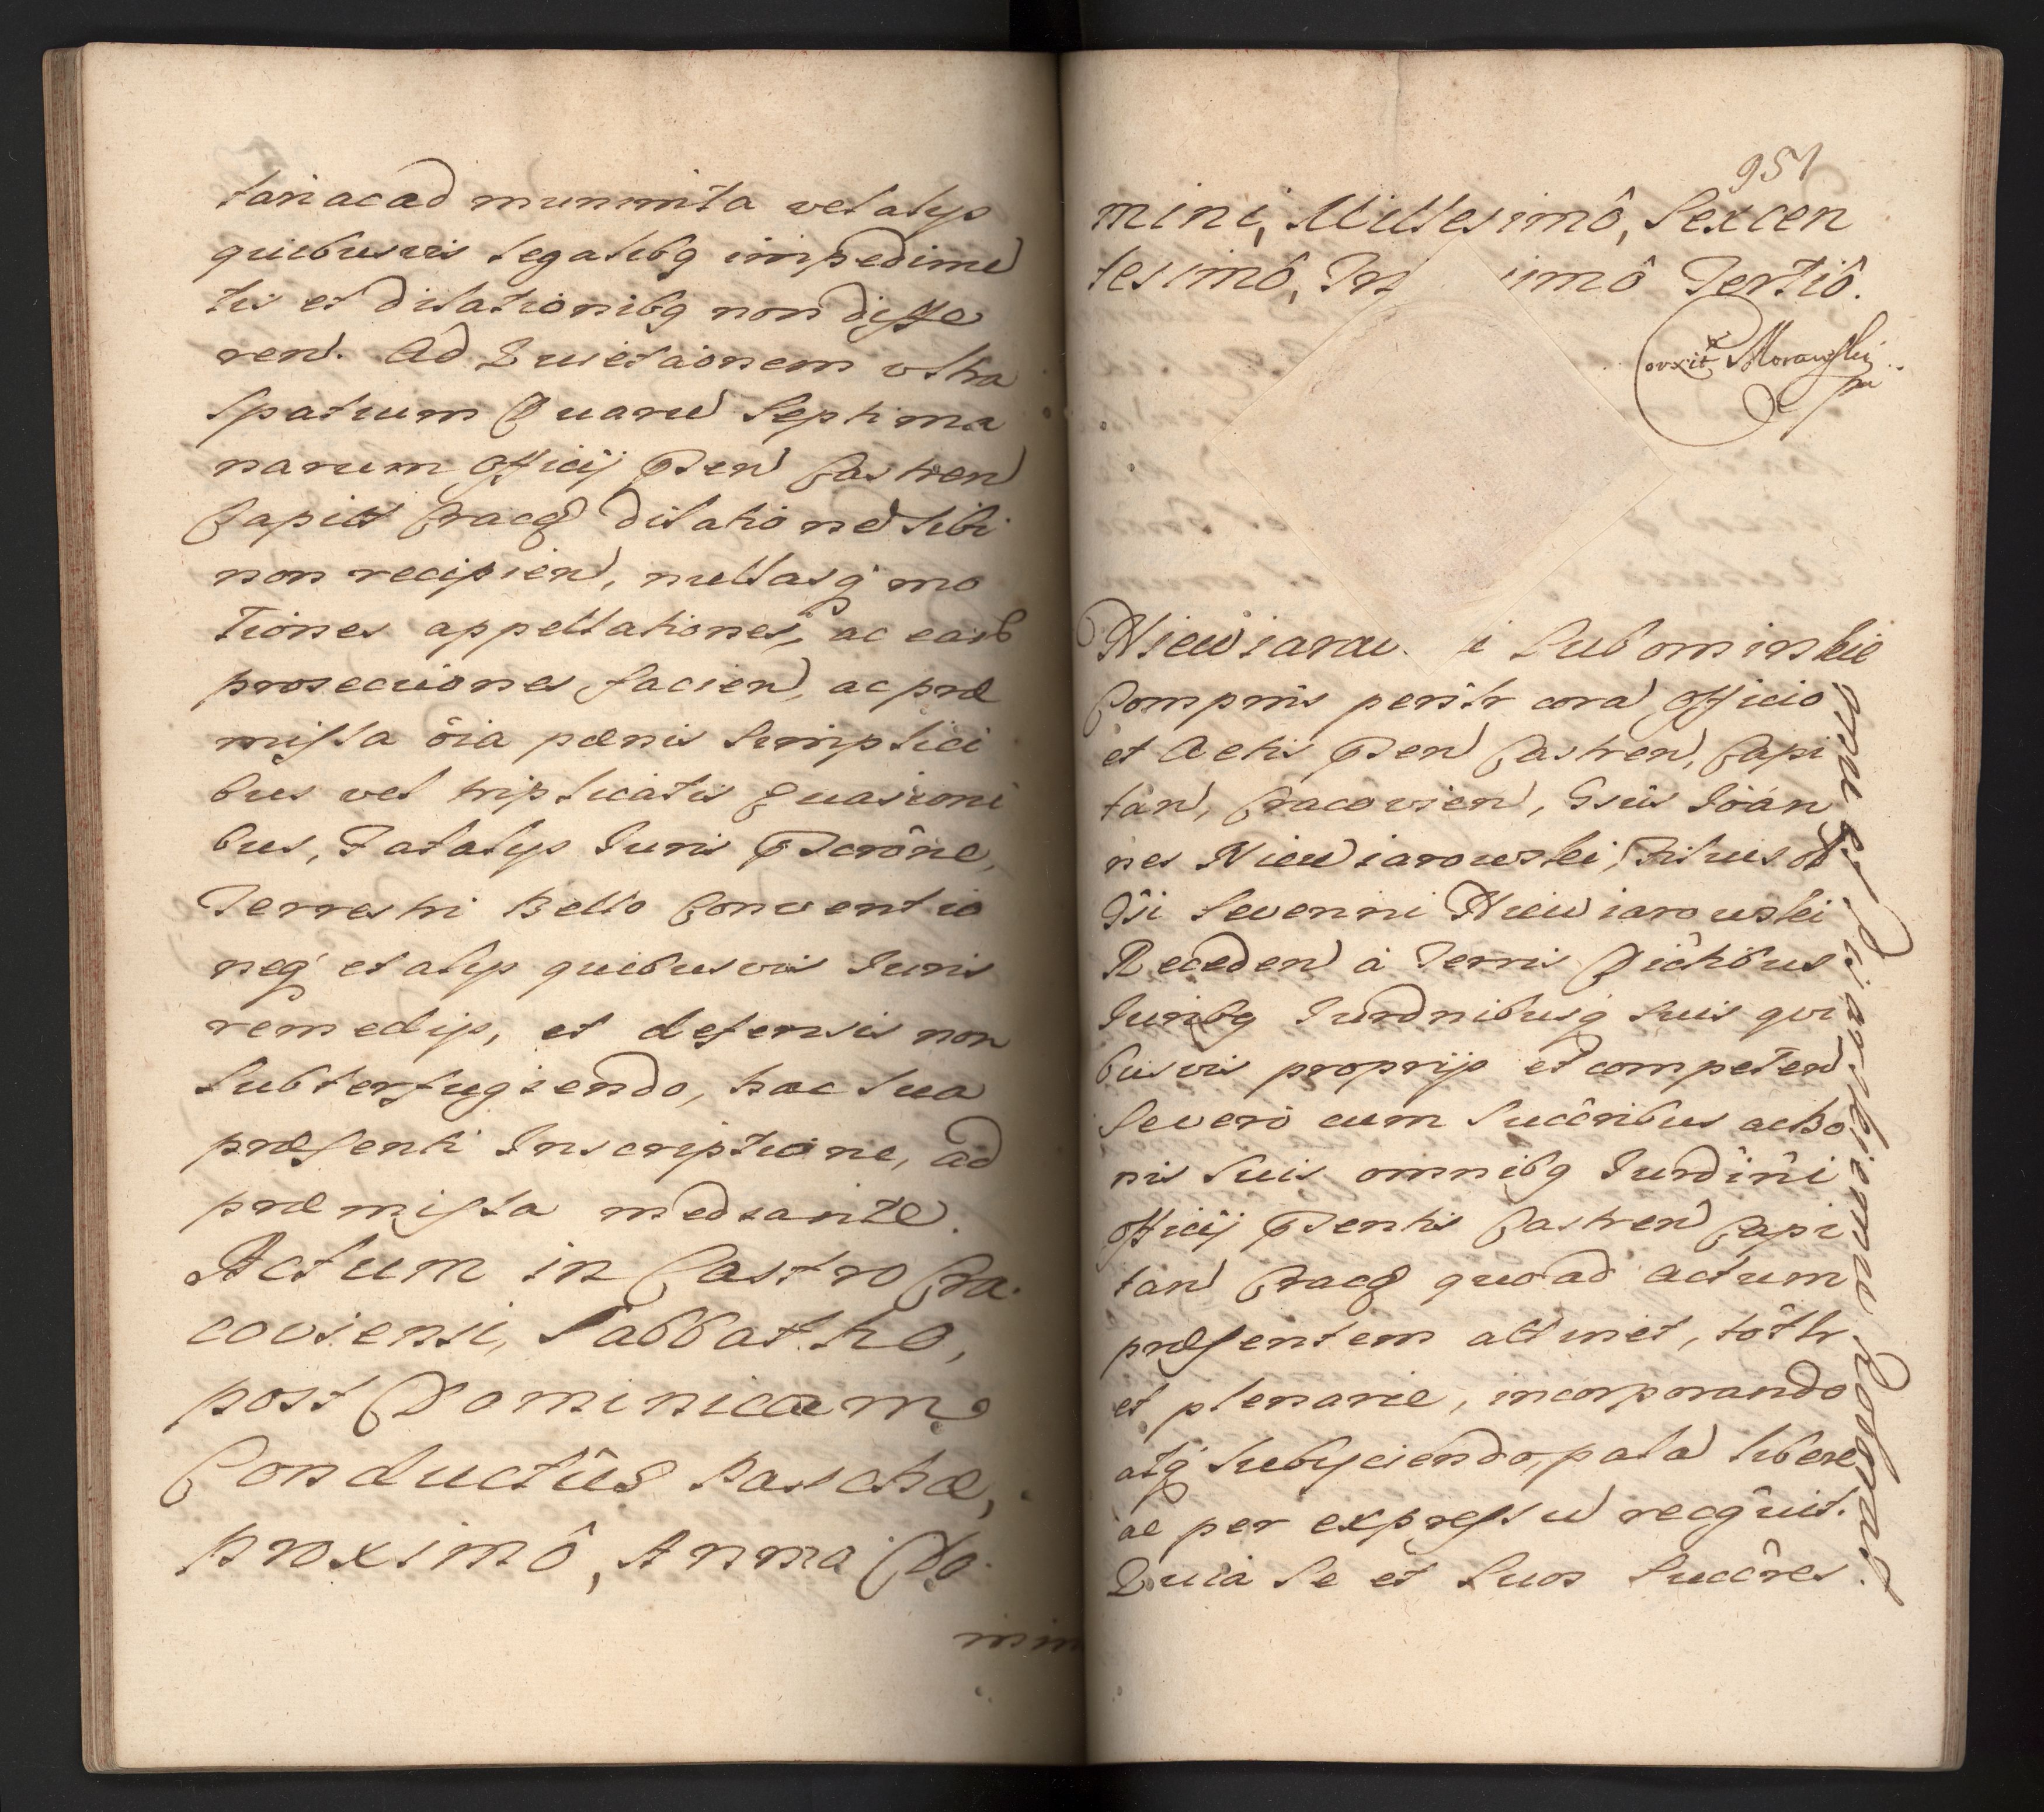 tari ac ad munimta vel alys
quibusvis legalibq impedime
tis et dilationibq non diffe
ren. Ad Quietaonem vltra
spatium Quatu Septima
narum Officij Psen Castren
Capitt Crac dilatione sibi
non recipien, nullasq mo
tiones appellationes, ac earb
prosecuiones facien, ac præ
missa oia pænis simplici
bus vel triplicatis euasioni
bus, Fatalys Iuris Pscrône,
Terrestri Bello Conventio
neq et alys quibusvis Iuris
remedijs, et defensis non
subterfugiendo, hac sua
præsenti Inscriptione, ad
præmissa mediante.
Actum in Castro Cra
coviensi, Sabbatho,
post Dominicam
Conductûs Paschæ,
proximô, Anno Do
mini
951
mini, Millesimô, Sexcen
tesimô, Tri simô Tertiô.
Corxit Morawski
mp
Niewiarow i Lubominskie
Comprns persltr cora Officio
et Actis Psen Castren, Capi
tan, Cracovien, Gsûs Ioan
nes Niewiarowski, Filius Olb
Gsi Severini Niewiarowski
Receden a Terris Dictibus
Iuribq Iurdnibusq suis qui
busvis proprijs et competen
Se vero cum Succribus ac bo
nis suis omnibq Iurdîni
Officij Psentis Castren Capi
tan Crac quo ad actum
præsentem attinet, totlr
et plenarie, incorporando
atq subyciendo, pala libere
ac per expressu recgûit.
Quia se et suos Succres